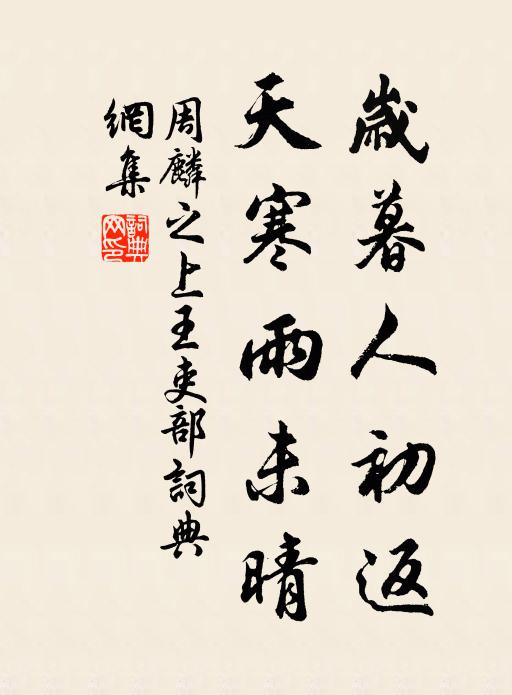 歲暮人初返
天寒雨未晴
周麟之上王吏部詞典
網集
詞典網印